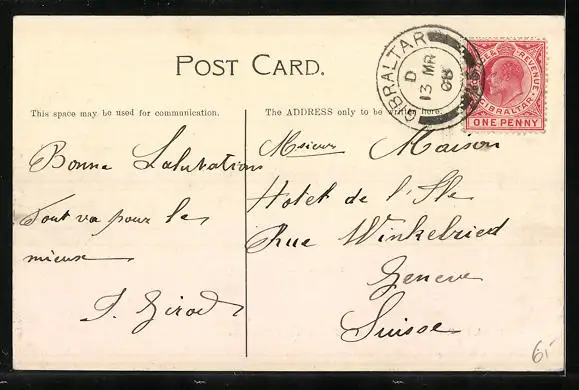 POST CARD.
This space may be used for communication.
The ADDRESS only to be written here.
GIBRALTAR
D
13 MR
08
& REVENUE
GIBRALTAR
ONE PENNY
Bonne Salutations
Tout va pour le
mieux
J. Girod
Msieur Maison
Hotel de l'Ile
Rue Winkelried
Geneve
Suisse
6.-